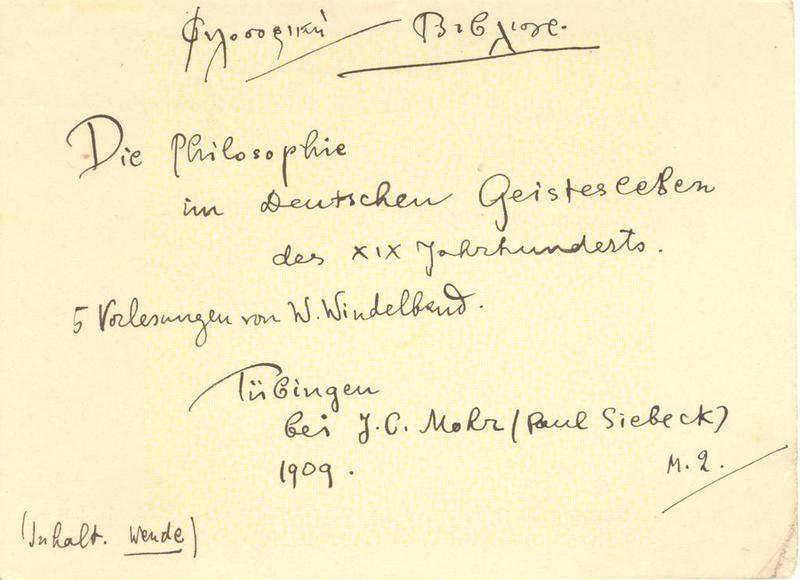 Φιλοσοφική Βιβλιογρ.
Die Philosophie
im Deutschen Geistesleben
des XIX Jahrhunderts.
5 Vorlesungen von W. Windelband.
Tübingen
bei J. C. Mohr (Paul Siebeck)
1909. M. 2.
(Inhalt. Wende)